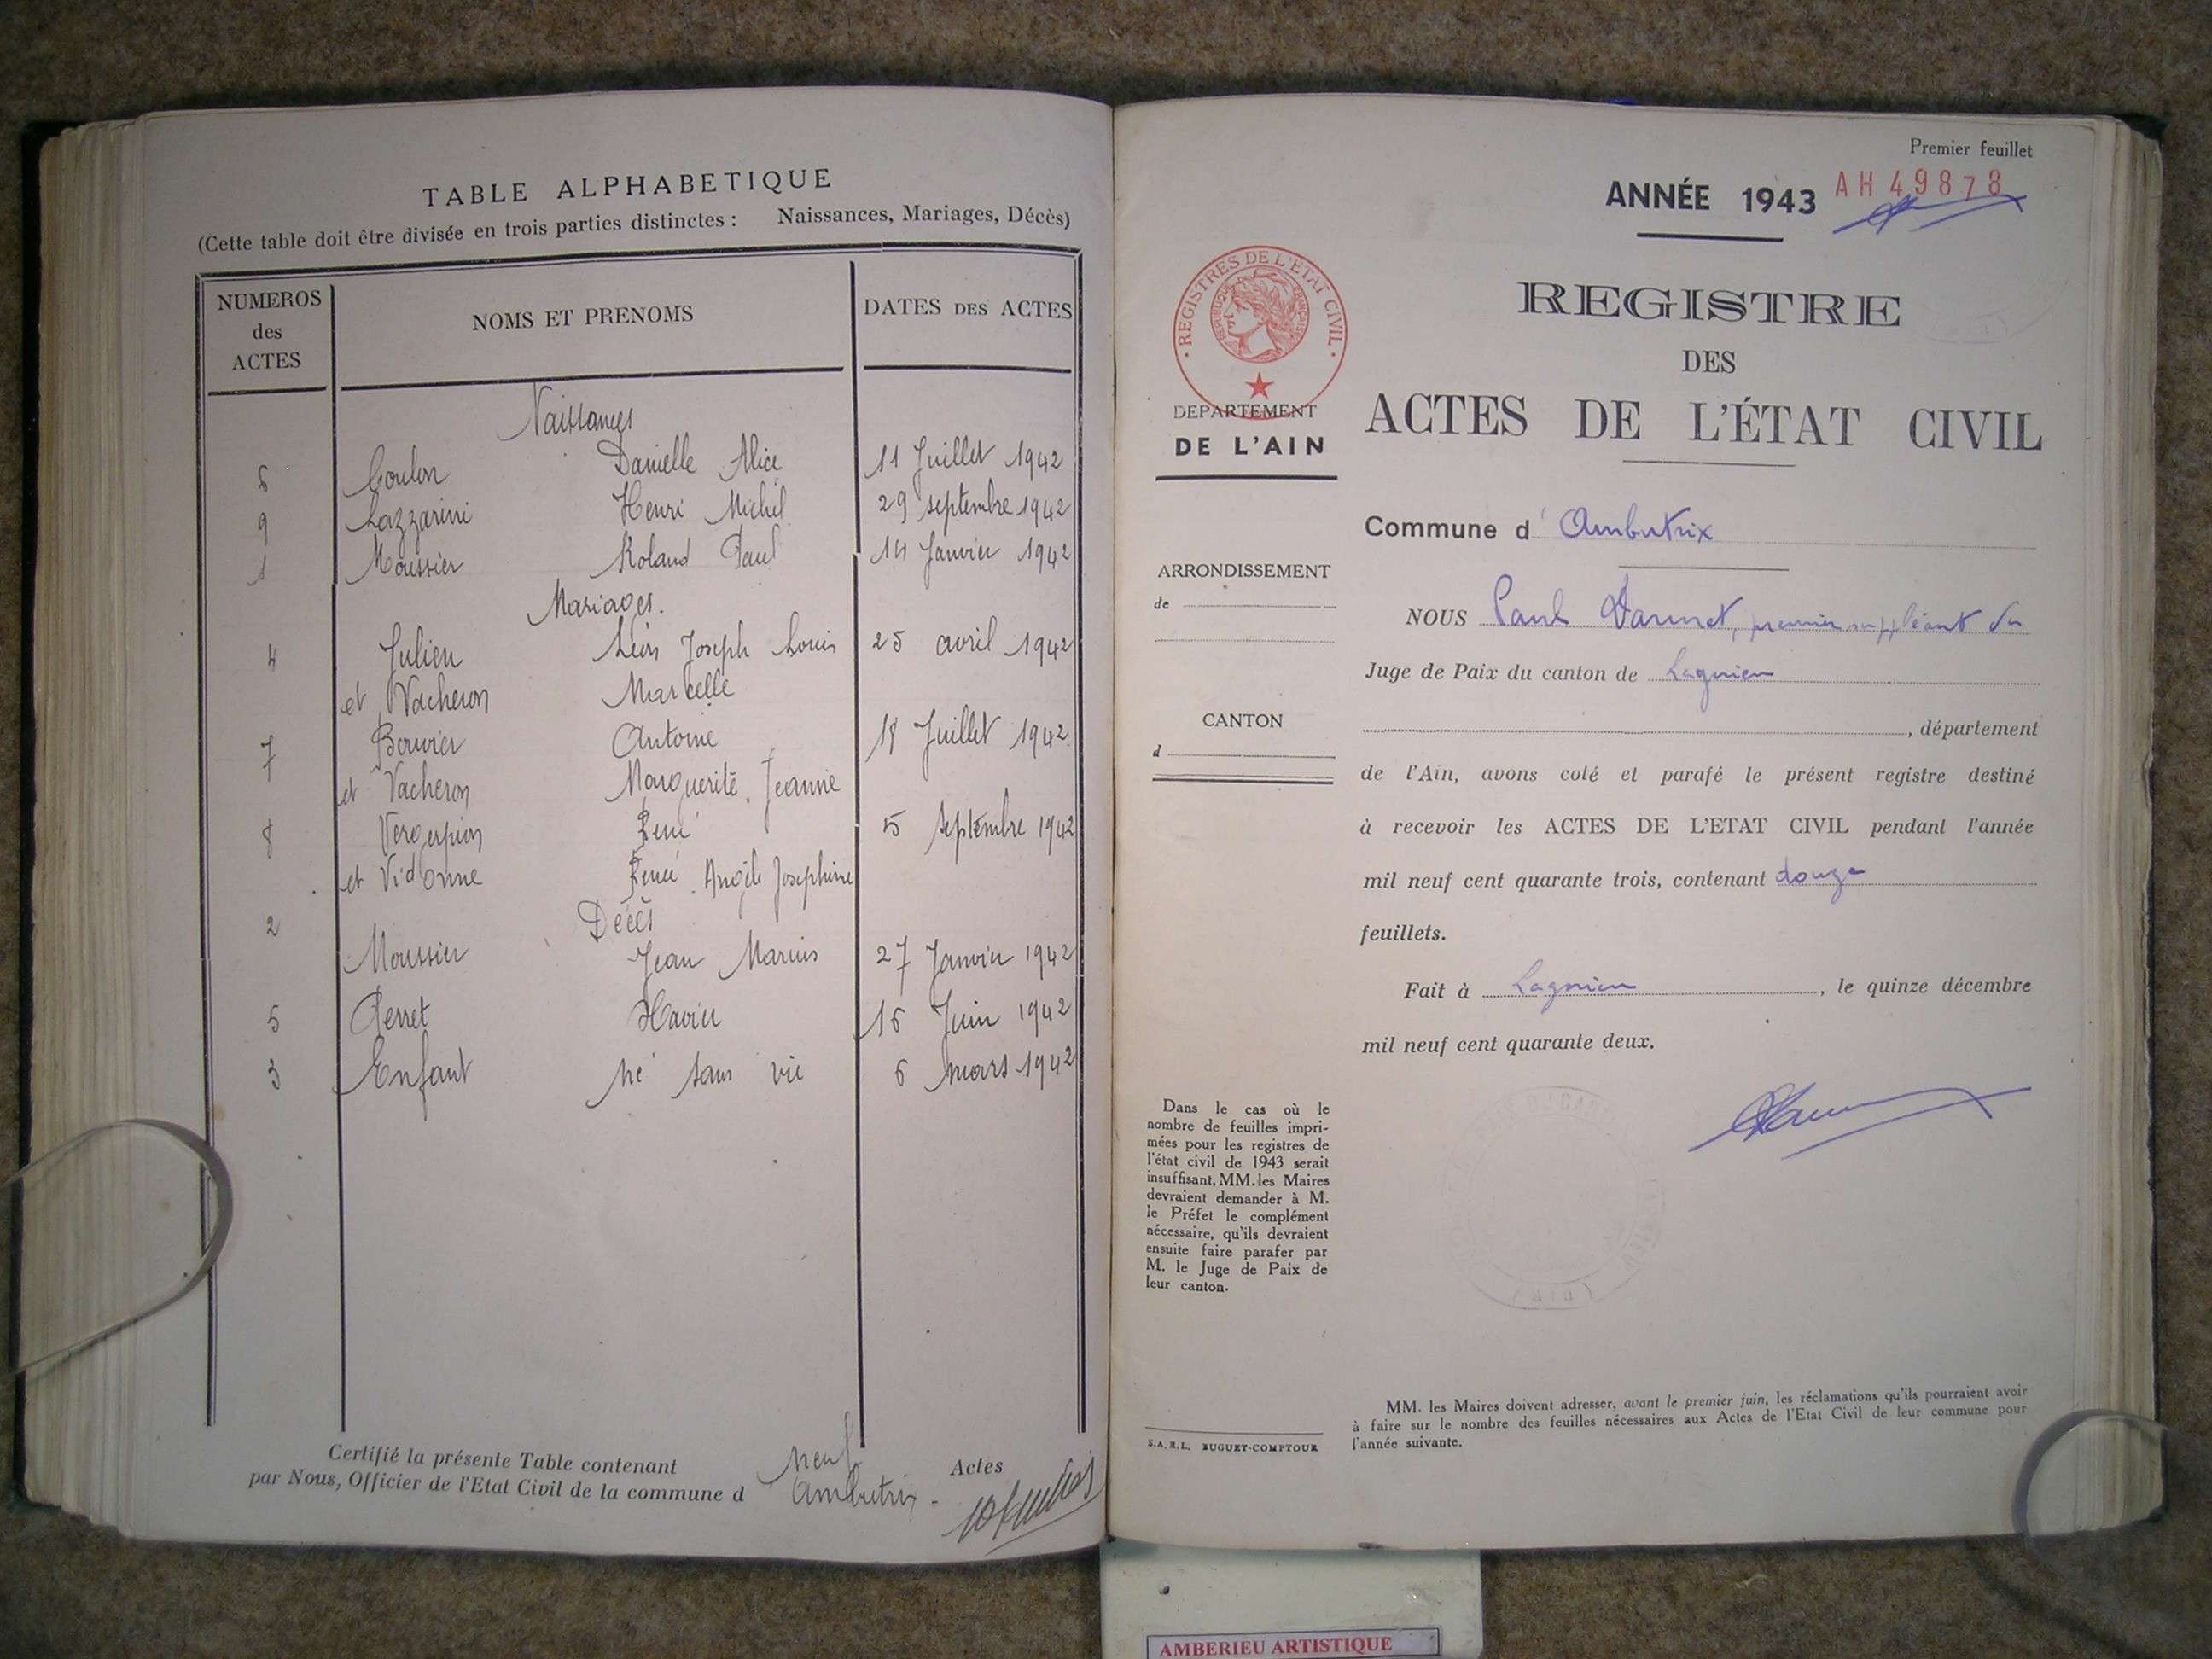 TABLE ALPHABETIQUE
(Cette table doit être divisée en trois parties distinctes : Naissances, Mariages, Décès)
NUMEROS des ACTES
NOMS ET PRENOMS
DATES DES ACTES
Naissances
6 Coulon Danielle Alice 11 Juillet 1942
9 Lazzarini Henri Michel 29 septembre 1942
1 Moussier Roland Paul 14 Janvier 1942
Mariages.
4 Julien Léon Joseph Louis 25 avril 1942
et Vacheron Marcelle
7 Bouvier Antoine 18 Juillet 1942
et Vacheron Marguerite Jeanne
8 René 5 septembre 1942
et Vidonne Renée Angèle Josephine
Décès
2
Moussier Jean Marius 27 Janvier 1942
5 Perret Xavier 16 Juin 1942
3 Enfant né sans vie 6 mars 1942
Certifié la présente Table contenant neuf Actes
par Nous, Officier de l'Etat Civil de la commune d Ambutrix -
Premier feuillet
ANNÉE 1943 AH 49878
REGISTRES DE L'ÉTAT CIVIL
REPUBLIQUE FRANÇAISE
DEPARTEMENT
DE L'AIN
REGISTRE
DES
ACTES DE L'ÉTAT CIVIL
Commune d' Ambutrix
ARRONDISSEMENT
de
CANTON
d
NOUS Paul premier suppléant du
Juge de Paix du canton de Lagnieu
, département
de l'Ain, avons coté et parafé le présent registre destiné
à recevoir les ACTES DE L'ETAT CIVIL pendant l'année
mil neuf cent quarante trois, contenant douze
feuillets.
Fait à Lagnieu, le quinze décembre
mil neuf cent quarante deux.
Dans le cas où le
nombre de feuilles impri-
mées pour les registres de
l'état civil de 1943 serait
insuffisant, MM. les Maires
devraient demander à M.
le Préfet le complément
nécessaire, qu'ils devraient
ensuite faire parafer par
M. le Juge de Paix de
leur canton.
S.A.R.L. BUGUET-COMPTOUR
MM. les Maires doivent adresser, avant le premier juin, les réclamations qu'ils pourraient avoir
à faire sur le nombre des feuilles nécessaires aux Actes de l'Etat Civil de leur commune pour
l'année suivante.
AMBERIEU ARTISTIQUE